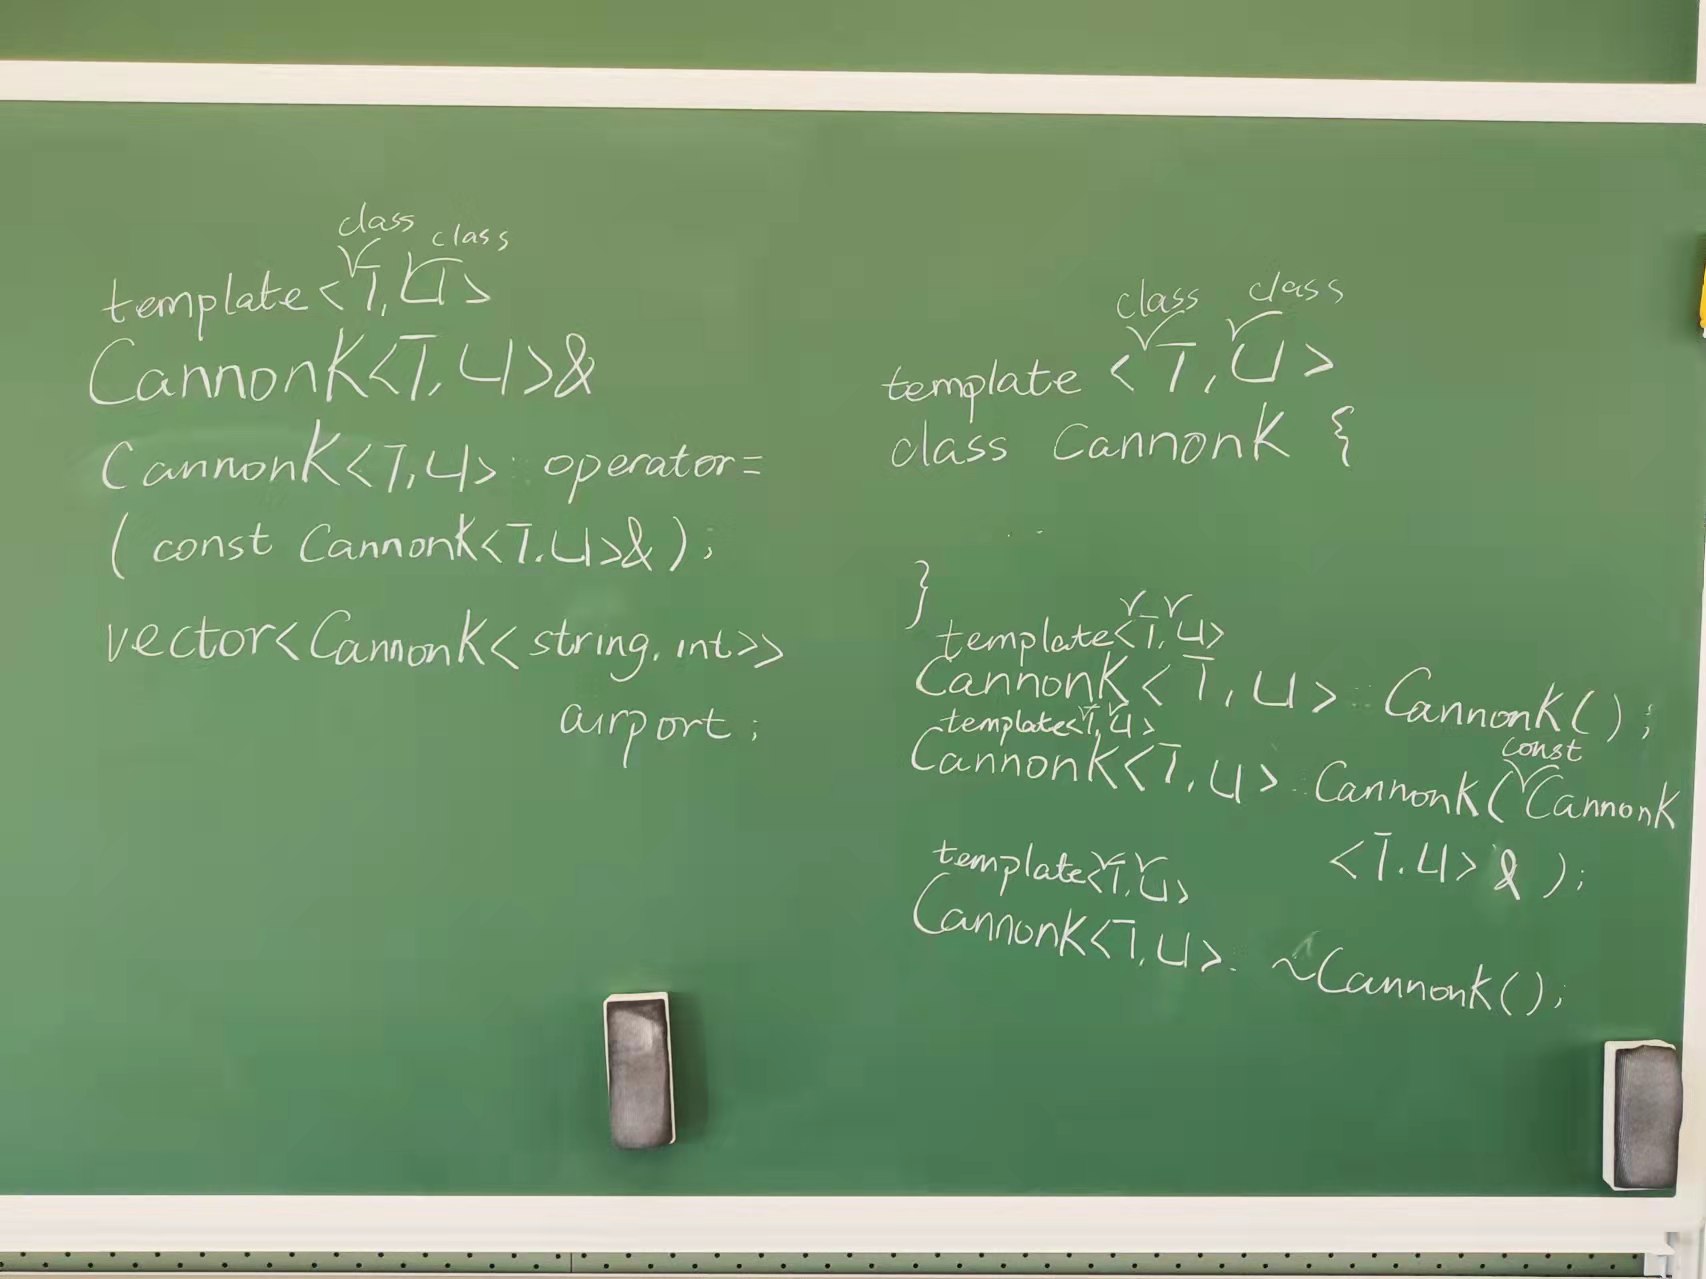 class class
template<T,U>
CannonK<T,U>&
CannonK<T,U>:: operator=
( const CannonK<T,U>& );
vector<CannonK<string,int>>
airport;
class class
template <T,U>
class CannonK {
...
}
template<T,U>
CannonK<T,U>:: CannonK();
template<T,U>
const
CannonK<T,U>:: CannonK(CannonK
<T,U>& );
template<T,U>
CannonK<T,U>:: ~CannonK();